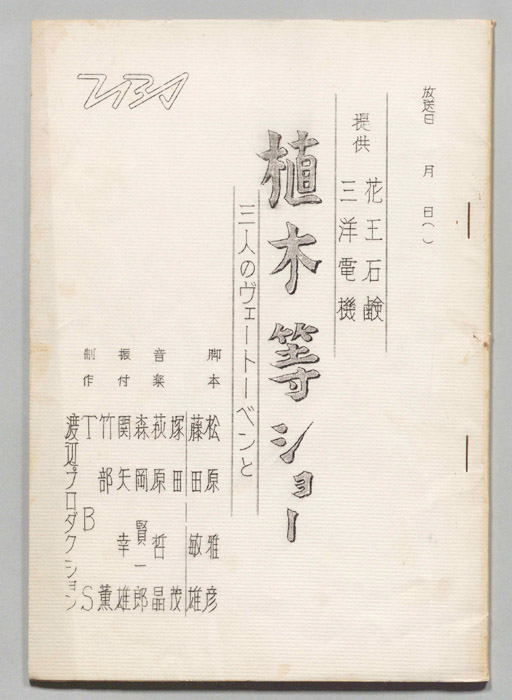 放送日　月　日（　）
提供
花王石鹸
三洋電機
植木等ショー
三人のヴェートーベンと
脚本
松原雅彦
藤田敏雄
塚田茂
音楽
萩原哲晶
森岡賢一郎
振付
関矢幸雄
竹部薫
制作
TBS
渡辺プロダクション
TBS